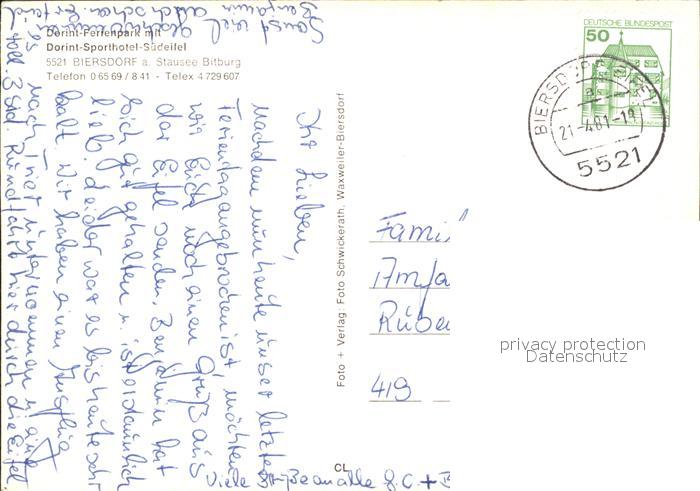 Dorint-Ferienpark mit
Dorint-Sporthotel-Südeifel
5521 BIERSDORF a. Stausee Bitburg
Telefon 0 65 69 / 8 41 - Telex 4 729 607
Ihr Lieben,
nachdem nun heute unser letzter
Ferientag angebrochen ist, möchten
wir Euch noch einen Gruß aus
der Eifel senden. Benjamin hat
sich gut gehalten u. ist erstaunlich
lieb. Leider war es bis heute sehr
kalt. Wir haben einen Ausflug
nach Trier unternommen u. eine
3 Std. Rundfahrt hier durch die Eifel
Sonst viel geschwommen
Benjamin
Viele Grüße an alle
Foto + Verlag: Foto Schwickerath, Waxweiler-Biersdorf
CL
DEUTSCHE BUNDESPOST
50
BIERSDORF
21-4.81-19
5521
Famil
Rübe
419
privacy protection
Datenschutz